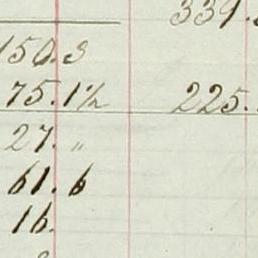 339.
150.3
75.1½ 225.
27. "
61.6
16.